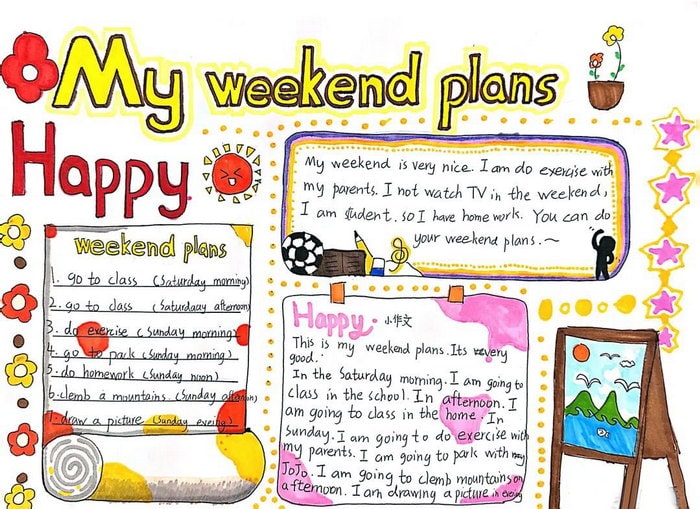 My weekend plans
Happy
weekend plans
1. go to class (Saturday morning)
2. go to class (Saturdaay afternoon)
3. do exercise (Sunday morning)
4. go to park (Sunday morning)
5. do homework (Sunday noon)
6. clemb a mountains (Sunday
draw a picture (Sunday eveing)
My weekend is very nice. I am do exercise with
my parents. I not watch TV in the weekend,
I am student. so I have home work. You can do
your weekend plans. ~
Happy. 小作文
This is my weekend plans. Its very
good.
In the Saturday morning. I am going to
class in the school. In afternoon. I
am going to class in the home. In
Sunday. I am going to do exercise with
my parents. I am going to park with my
JoJo. I am going to clemb mountains on
afternoon. I am drawing a picture in